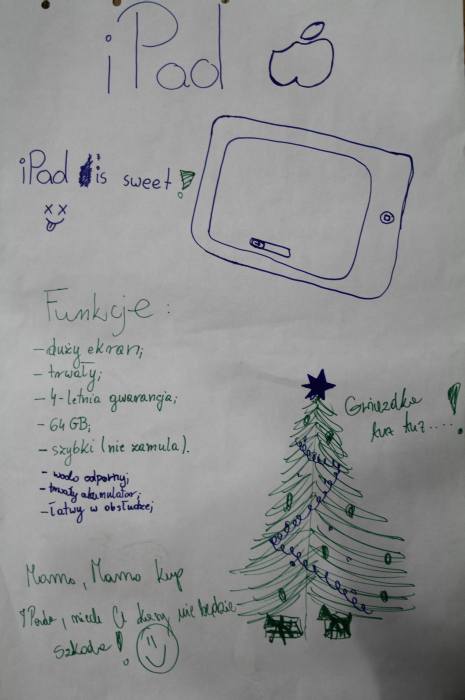 iPad
iPad is sweet!
Funkcje:
- duży ekran;
- trwały;
- 4-letnia gwarancja;
- 64 GB;
- szybki (nie zamula).
- wodo odporny;
- trwały akumulator;
- łatwy w obsłudze;
Gwiazdka
tuż tuż....!
Mamo, Mamo kup
IPada, niech Ci kasy nie będzie
szkoda!